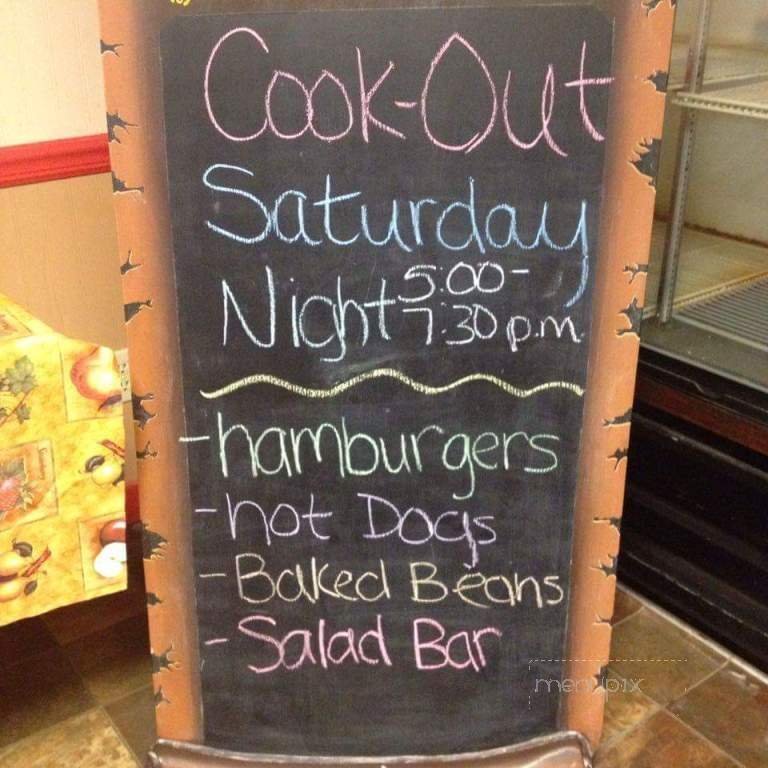 Cook-Out
Saturday
Night 5:00-
7:30 p.m.
-hamburgers
-hot Dogs
-Baked Beans
-Salad Bar
menupix